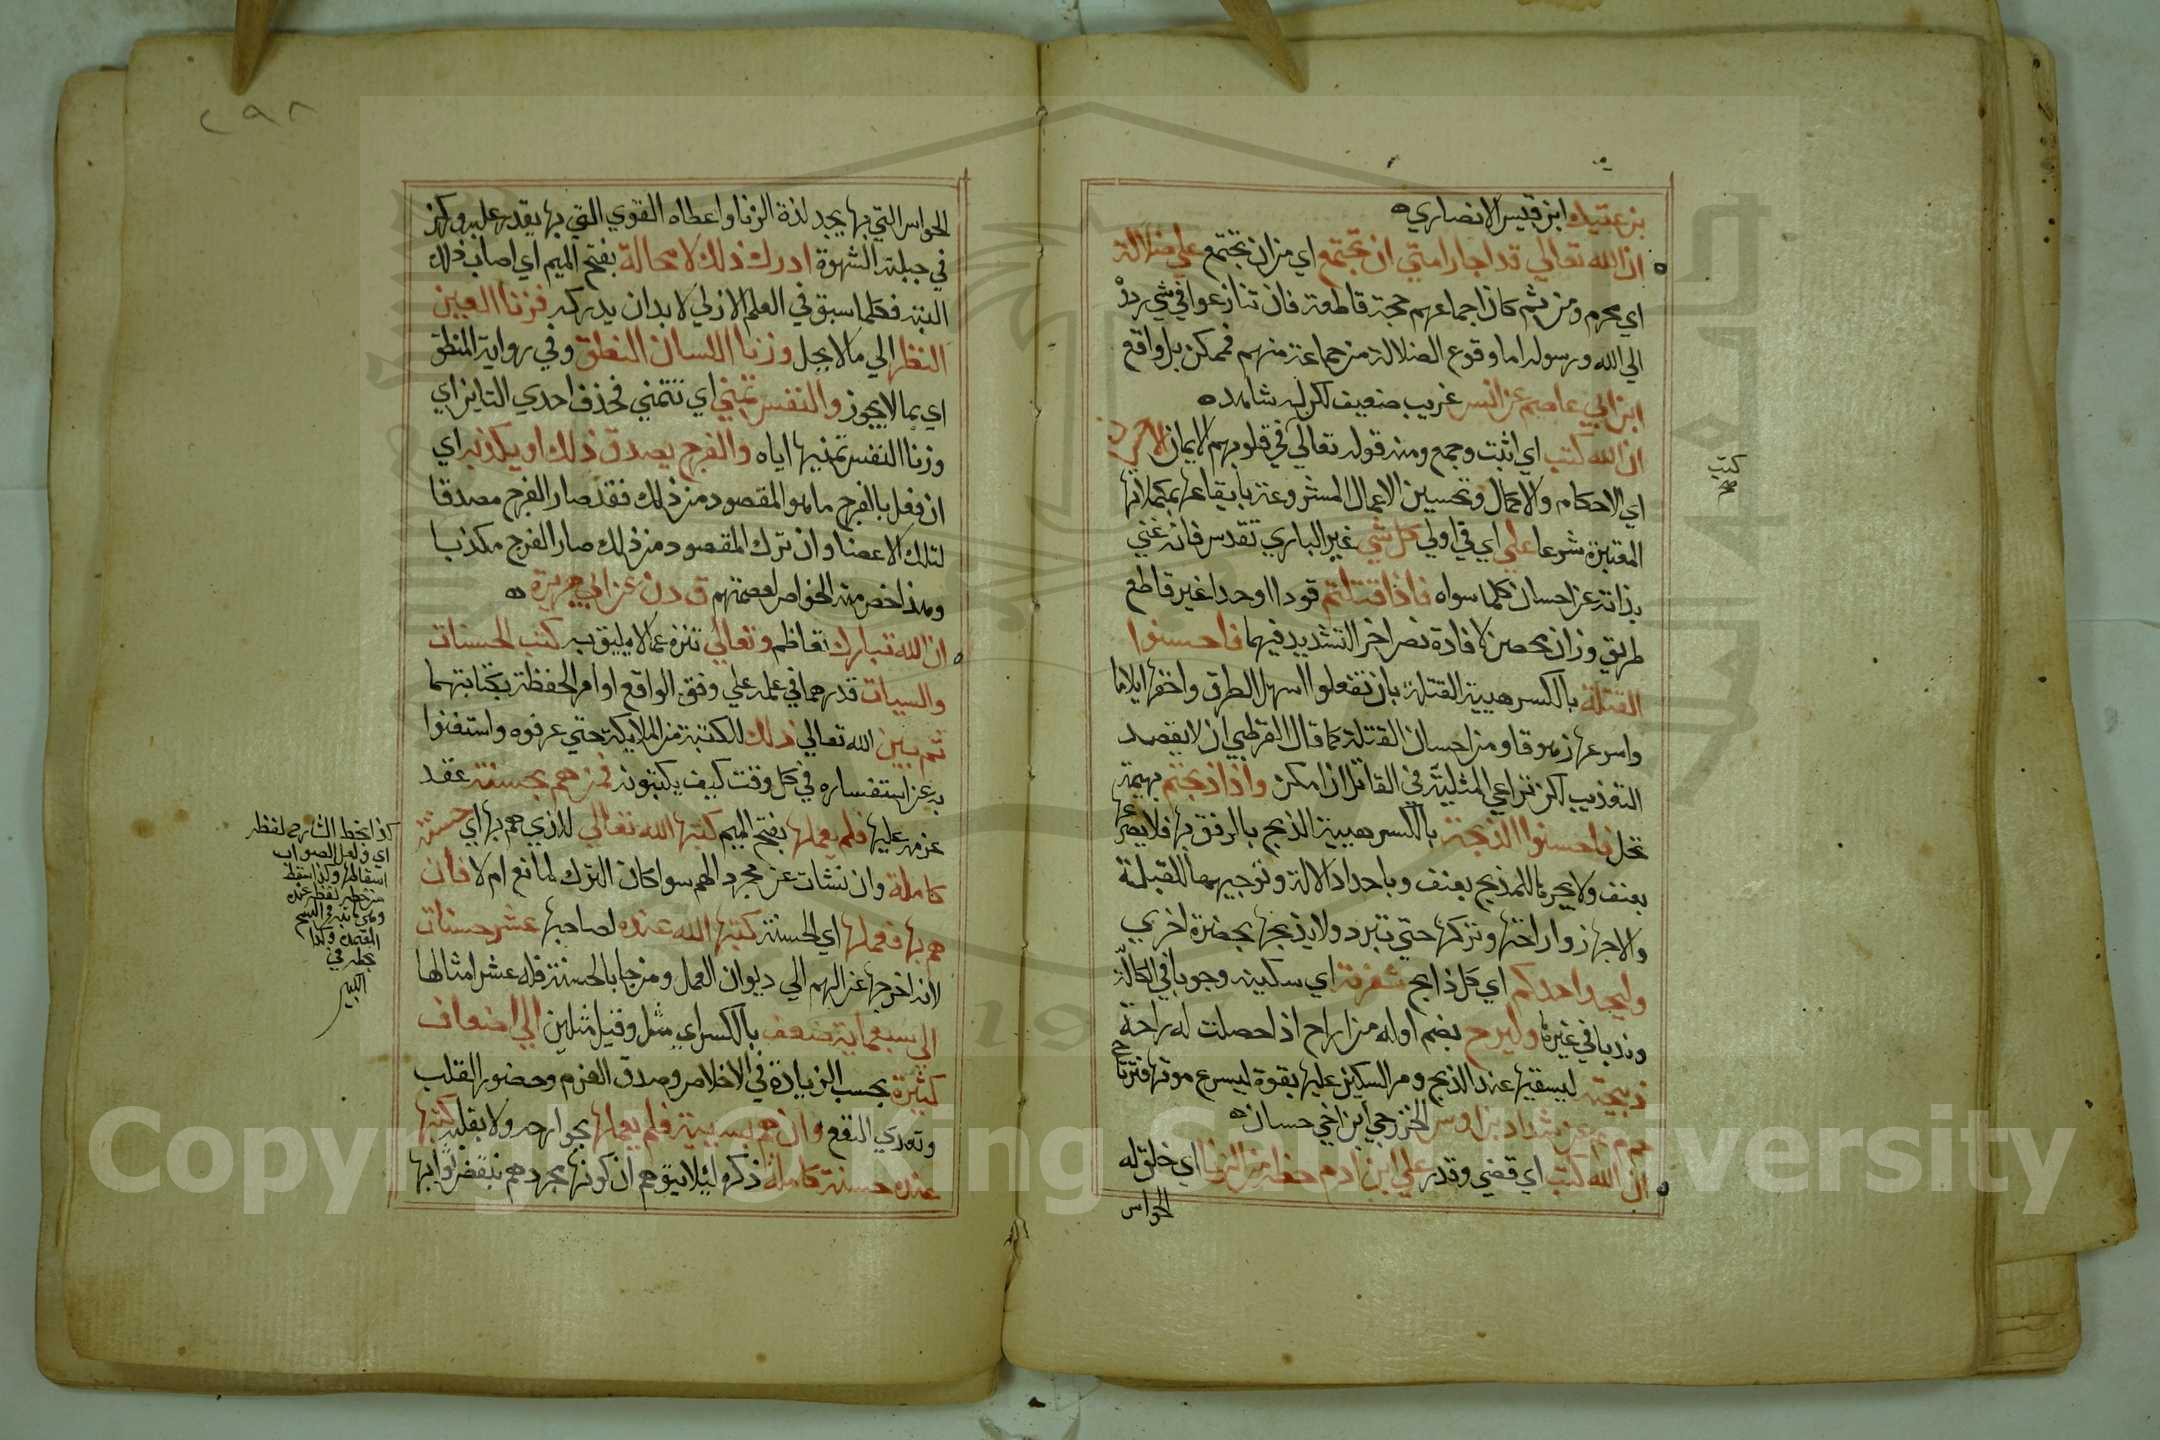 بن عتيك ابن قيس الانصاري
ان الله تعالي قد اجار امتي ان تجتمع اي من ان تجتمع علي ضلالة
اي محرم ومن ثم كان اجماعهم حجة قاطعة فان تنازعوا في شي رد
الي الله ورسوله اما وقوع الضلالة من جماعة منهم فممكن بل واقع
ابن ابي عاصم عن انس غريب ضعيف لكن له شاهد
ان الله كتب اي اثبت وجمع ومنه قوله تعالي في قلوبهم الايمان الاحسان
اي الاحكام والاكمال وتحسين الاعمال المشروعة بايقاعها بمكملاتها
المعتبرة شرعا علي اي في او لي كل شي غير الباري تقدس فانه غني
بذاته عن احسان كلما سواه فاذا قتلتم قودا او حدا غير قاطع
طريق وزان محصن لافادة نص اخر التشديد فيهما فاحسنوا
القتلة بالكسر هيية القتلة بان تفعلوا اسهل الطرق واخفها ايلاما
واسرعها زهوقا ومن احسان القتلة كما قال القرطبي ان لا يقصد
التعذيب لكن تراعي المثلية في القاتل ان امكن واذا ذبحتم بهيمة
تحل فاحسنوا الذبحة بالكسر هيية الذبح بالرفق بها فلا يصرعها
بعنف ولا يجرها للمذبح بعنف وباحداد الالة وتوجيهها للقبلة
والاجهاز واراحتها وتركها حتي تبرد ولا يذبحها بحضرة اخري
وليحد احدكم اي كل ذابح شفرته اي سكينه وجوبا في الكالة
وندبا في غيرها وليرح بضم اوله من اراح اذا حصلت له راحة
ذبيحته ليسقيها عند الذبح ومر السكين عليها بقوة ليسرع موتها فترتاح
حم م عن شداد بن اوس الخزرجي ابن اخي حسان
ان الله كتب اي قضي وقدر علي ابن ادم حظه من الزنا اي خلق له
الحواس
كتب
صح
٢٩٨
الحواس التي بها يجد لذة الزنا واعطاه القوي التي بها يقدر عليه وركز
في جبلته الشهوة ادرك ذلك لا محالة بفتح الميم اي اصاب ذلك
البتة فكلما سبق في العلم الازلي لا بد ان يدركه فزنا العين
النظر الي ما لا يحل وزنا اللسان النطق وفي رواية المنطق
اي بما لا يجوز والنفس تمني اي تتمني فحذف احدي التاين اي
وزنا النفس تمنيها اياه والفرج يصدق ذلك او يكذبه اي
ان فعل بالفرج ما هو المقصود من ذلك فقد صار الفرج مصدقا
لتلك الاعضا وان ترك المقصود من ذلك صار الفرج مكذبا
وهذا خص منه الخواص لعصمتهم ق د ن عن ابي هريرة
ان الله تبارك تعاظم وتعالي تنزه عما لا يليق به كتب الحسنات
والسيات قدرهما في علمه علي وفق الواقع او امر الحفظة بكتابتهما
ثم بين الله تعالي ذلك للكتبة من الملايكة حتي عرفوه واستغنوا
به عن استفساره في كل وقت كيف يكتبونه فمن هم بحسنة عقد
عزمه عليها فلم يعملها بفتح الميم كتبها الله تعالي للذي هم بها اي حسنة
كاملة وان نشات عن مجرد الهم سوا كان الترك لمانع ام لا فان
هم بها فعملها اي الحسنة كتبها الله عنده لصاحبها عشر حسنات
لانه اخرجها عن الهم الي ديوان العمل ومن جا بالحسنة فله عشر امثالها
الي سبعماية ضعف بالكسر اي مثل وقيل مثلين الي اضعاف
كثيرة بحسب الزيادة في الاخلاص وصدق العزم وحضور القلب
وتعدي النفع وان هم بسيية فلم يعملها بجوارحه ولا بقلبه كتبها
عنده حسنة كاملة ذكره ليلا يتوهم ان كونها مجرد هم ينقص ثوابها
كذا بخط الشارح لفظه
اي ولعل الصواب
اسقاطها ولذا سقط
من خطه لفظ عنده
وهي ثابتة في النسخ
المعتمدة وكذا
بخطه في
الكبير